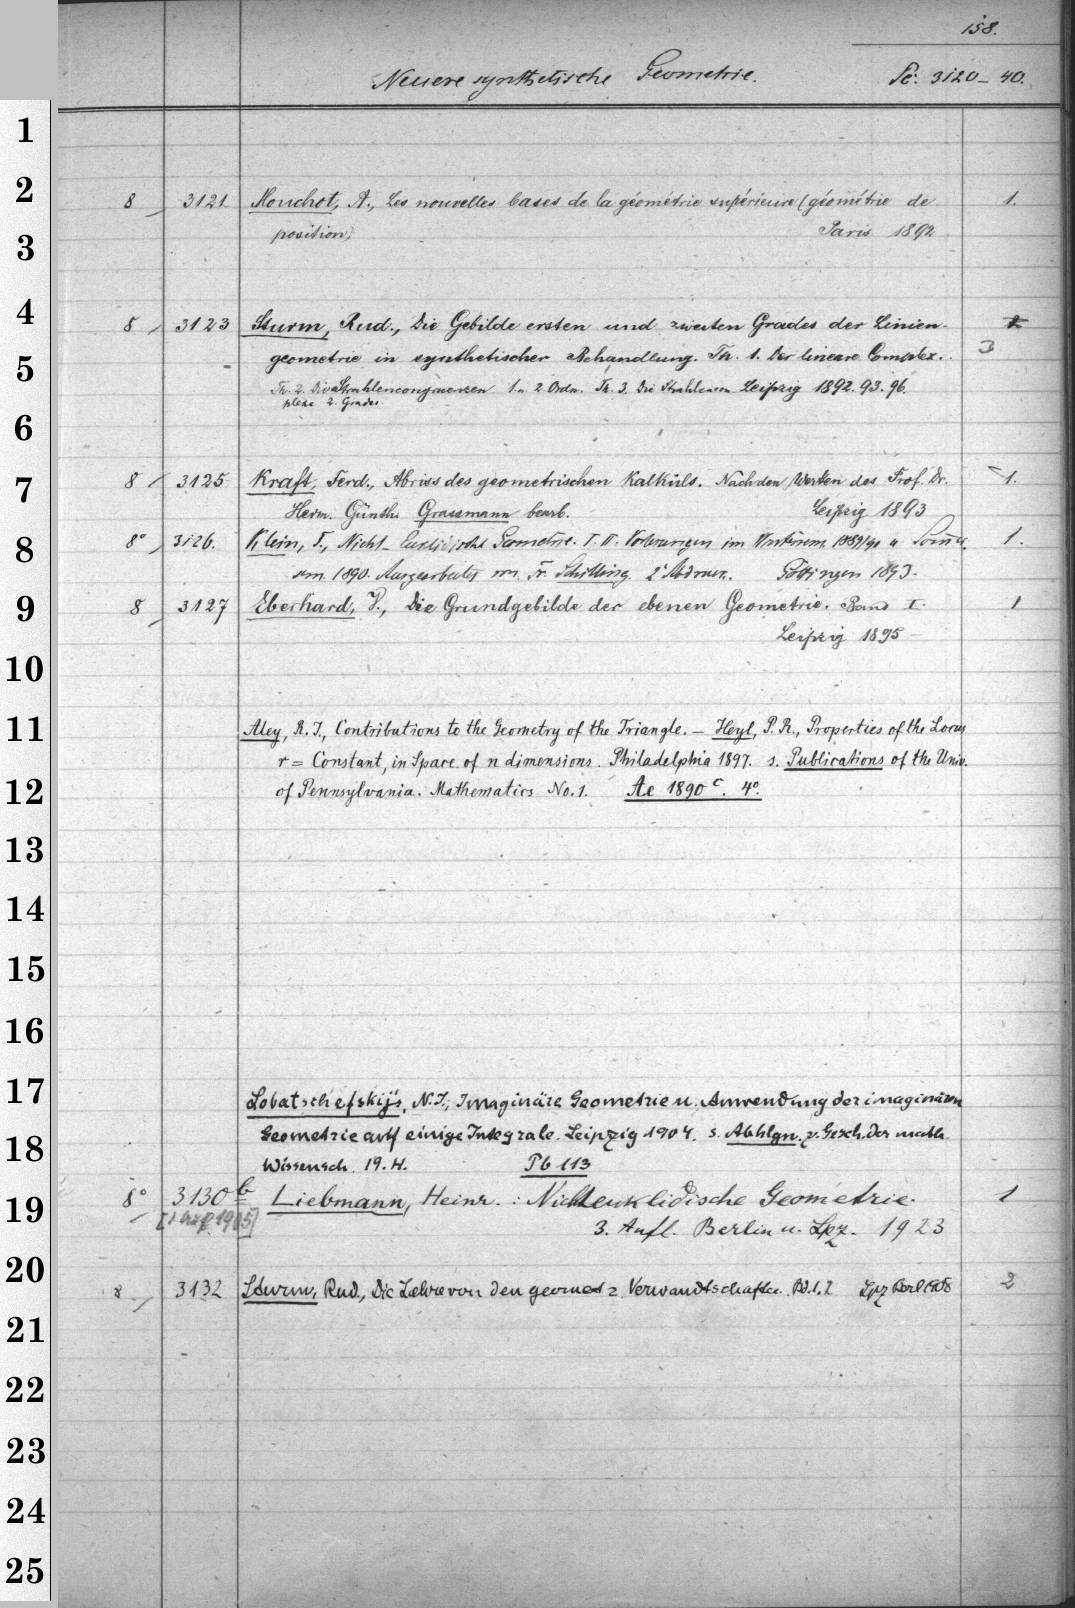 158.
Neuere synthetische Geometrie. Sc: 3120-40.
1
2
8 3121 Mouchot, A., Les nouvelles bases de la géométrie supérieure (géométrie de 1.
position) Paris 1892
3
4
8 3123 Sturm, Rud., Die Gebilde ersten und zweiten Grades der Linien-
geometrie in synthetischer Behandlung. Th. 1. Der lineare Complex. 3
5
Th. 2. Die Strahlencongruenzen 1. u. 2. Ordn. Th. 3. Die Strahlencom Leipzig 1892. 93. 96.
plexe 2. Grades.
6
7
8 3125 Kraft, Ferd., Abriss des geometrischen Kalküls. Nach den Werken des Prof. Dr. 1.
Herm. Günth. Grassmann bearb. Leipzig 1893
8
8° 3126. Klein, F., Nicht-Euklidische Geometrie. I. II. Vorlesungen im Wintersem. 1889/90 u Somm. 1.
sem. 1890. Ausgearbeitet von Fr. Schilling. 2. Abdruck. Göttingen 1893.
9
8 3127 Eberhard, V., Die Grundgebilde der ebenen Geometrie. Band I. 1
Leipzig 1895
10
11
Aley, R. J., Contributions to the Geometry of the Triangle. — Heyl, P. R., Properties of the Locus
r = Constant, in Space of n dimensions. Philadelphia 1897. s. Publications of the Univ.
12
of Pennsylvania. Mathematics No. 1. Ae 1890 c. 4°.
13
14
15
16
17
Lobatschefskijs, N. J., Imaginäre Geometrie u. Anwendung der imaginären
Geometrie auf einige Integrale. Leipzig 1904. s. Abhlgn. z. Gesch. der math.
18
Wissensch. 19. H. Pb 113
19
8° 3130 b Liebmann, Heinr. : Nichteuklidische Geometrie. 1
[1 Aufl. 1905] 3. Aufl. Berlin u. Lpz. 1923
20
8 3132 Sturm, Rud., Die Lehre von den geomet. Verwandtschaften. Bd. 1. 2 Lpz Berl 2
21
22
23
24
25